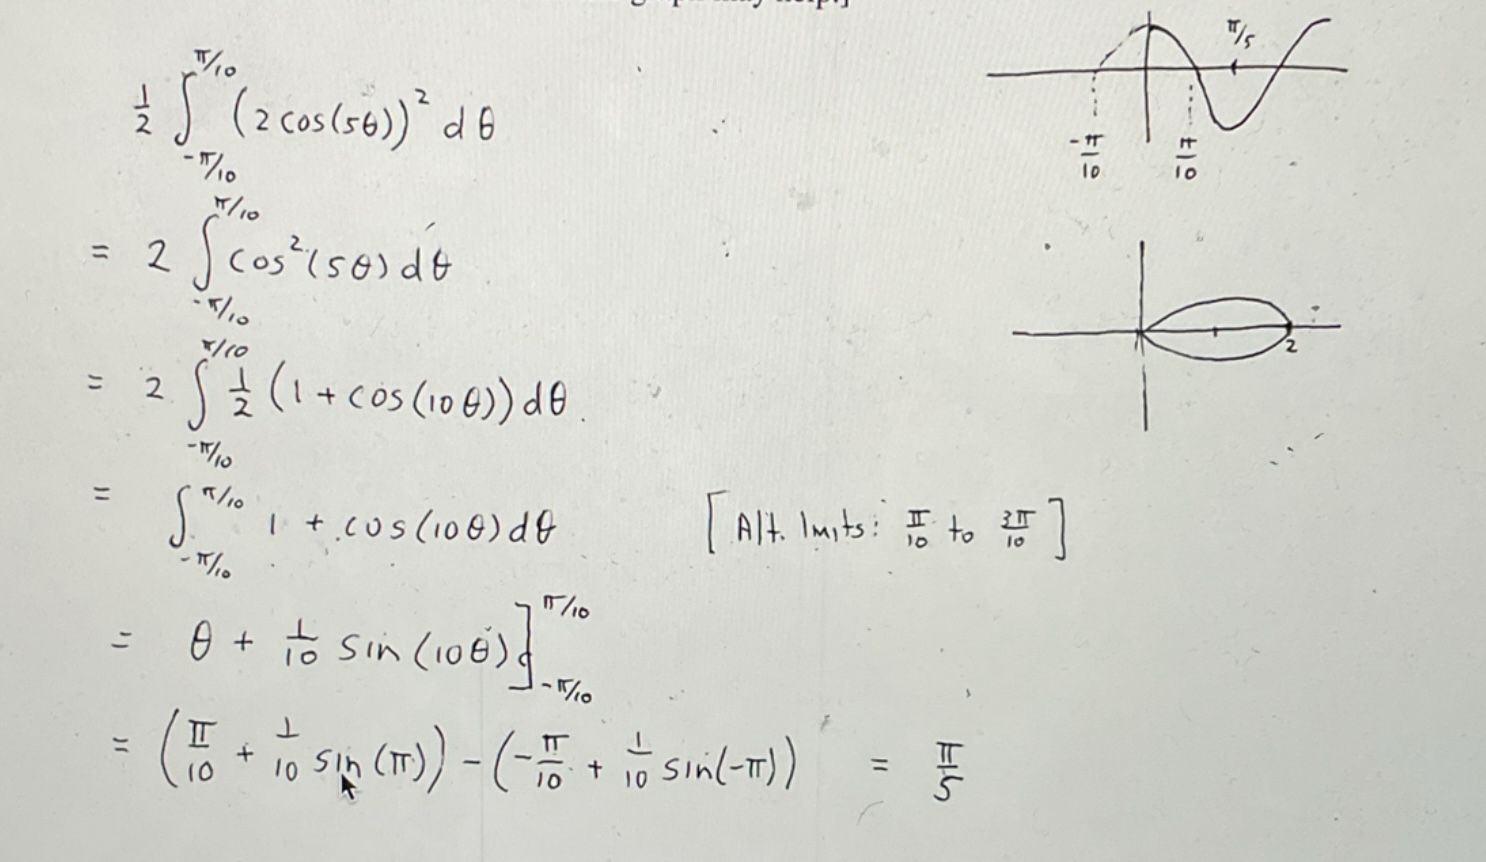 help.]
1/2 ∫_{-π/10}^{π/10} (2 cos(5θ))² dθ
= 2 ∫_{-π/10}^{π/10} cos²(5θ) dθ
= 2 ∫_{-π/10}^{π/10} 1/2 (1 + cos(10θ)) dθ
= ∫_{-π/10}^{π/10} 1 + cos(10θ) dθ [Alt. limits: π/10 to 3π/10]
= θ + 1/10 sin(10θ)]_{-π/10}^{π/10}
= (π/10 + 1/10 sin(π)) - (-π/10 + 1/10 sin(-π)) = π/5
π/5
-π/10 π/10
2